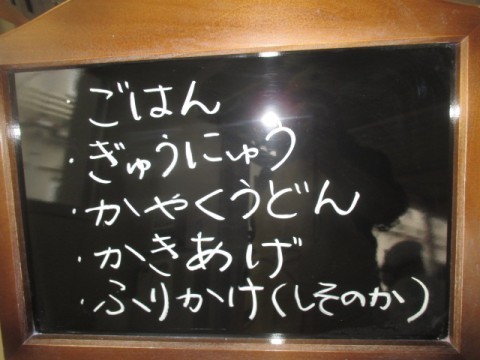 ごはん
・ぎゅうにゅう
・かやくうどん
・かきあげ
・ふりかけ(しそのか)